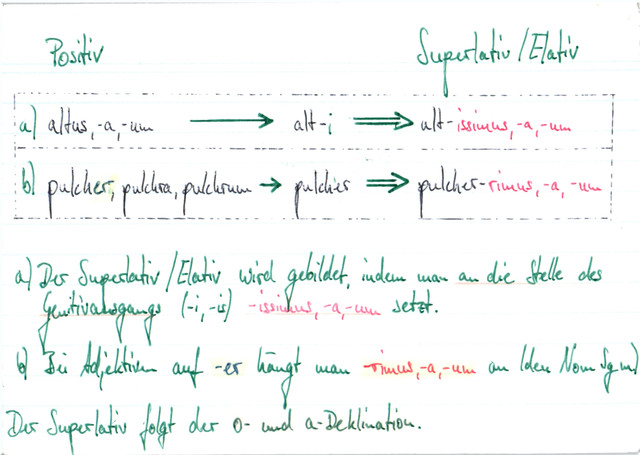 Positiv Superlativ/Elativ
a) altus, -a, -um → alt-i ⇒ alt-issimus, -a, -um
b) pulcher, pulchra, pulchrum → pulcher ⇒ pulcher-rimus, -a, -um
a) Der Superlativ/Elativ wird gebildet, indem man an die Stelle des
Genitivausgangs (-i, -is) -issimus, -a, -um setzt.
b) Bei Adjektiven auf -er hängt man -rimus, -a, -um an (den Nom Sg m)
Der Superlativ folgt der o- und a-Deklination.